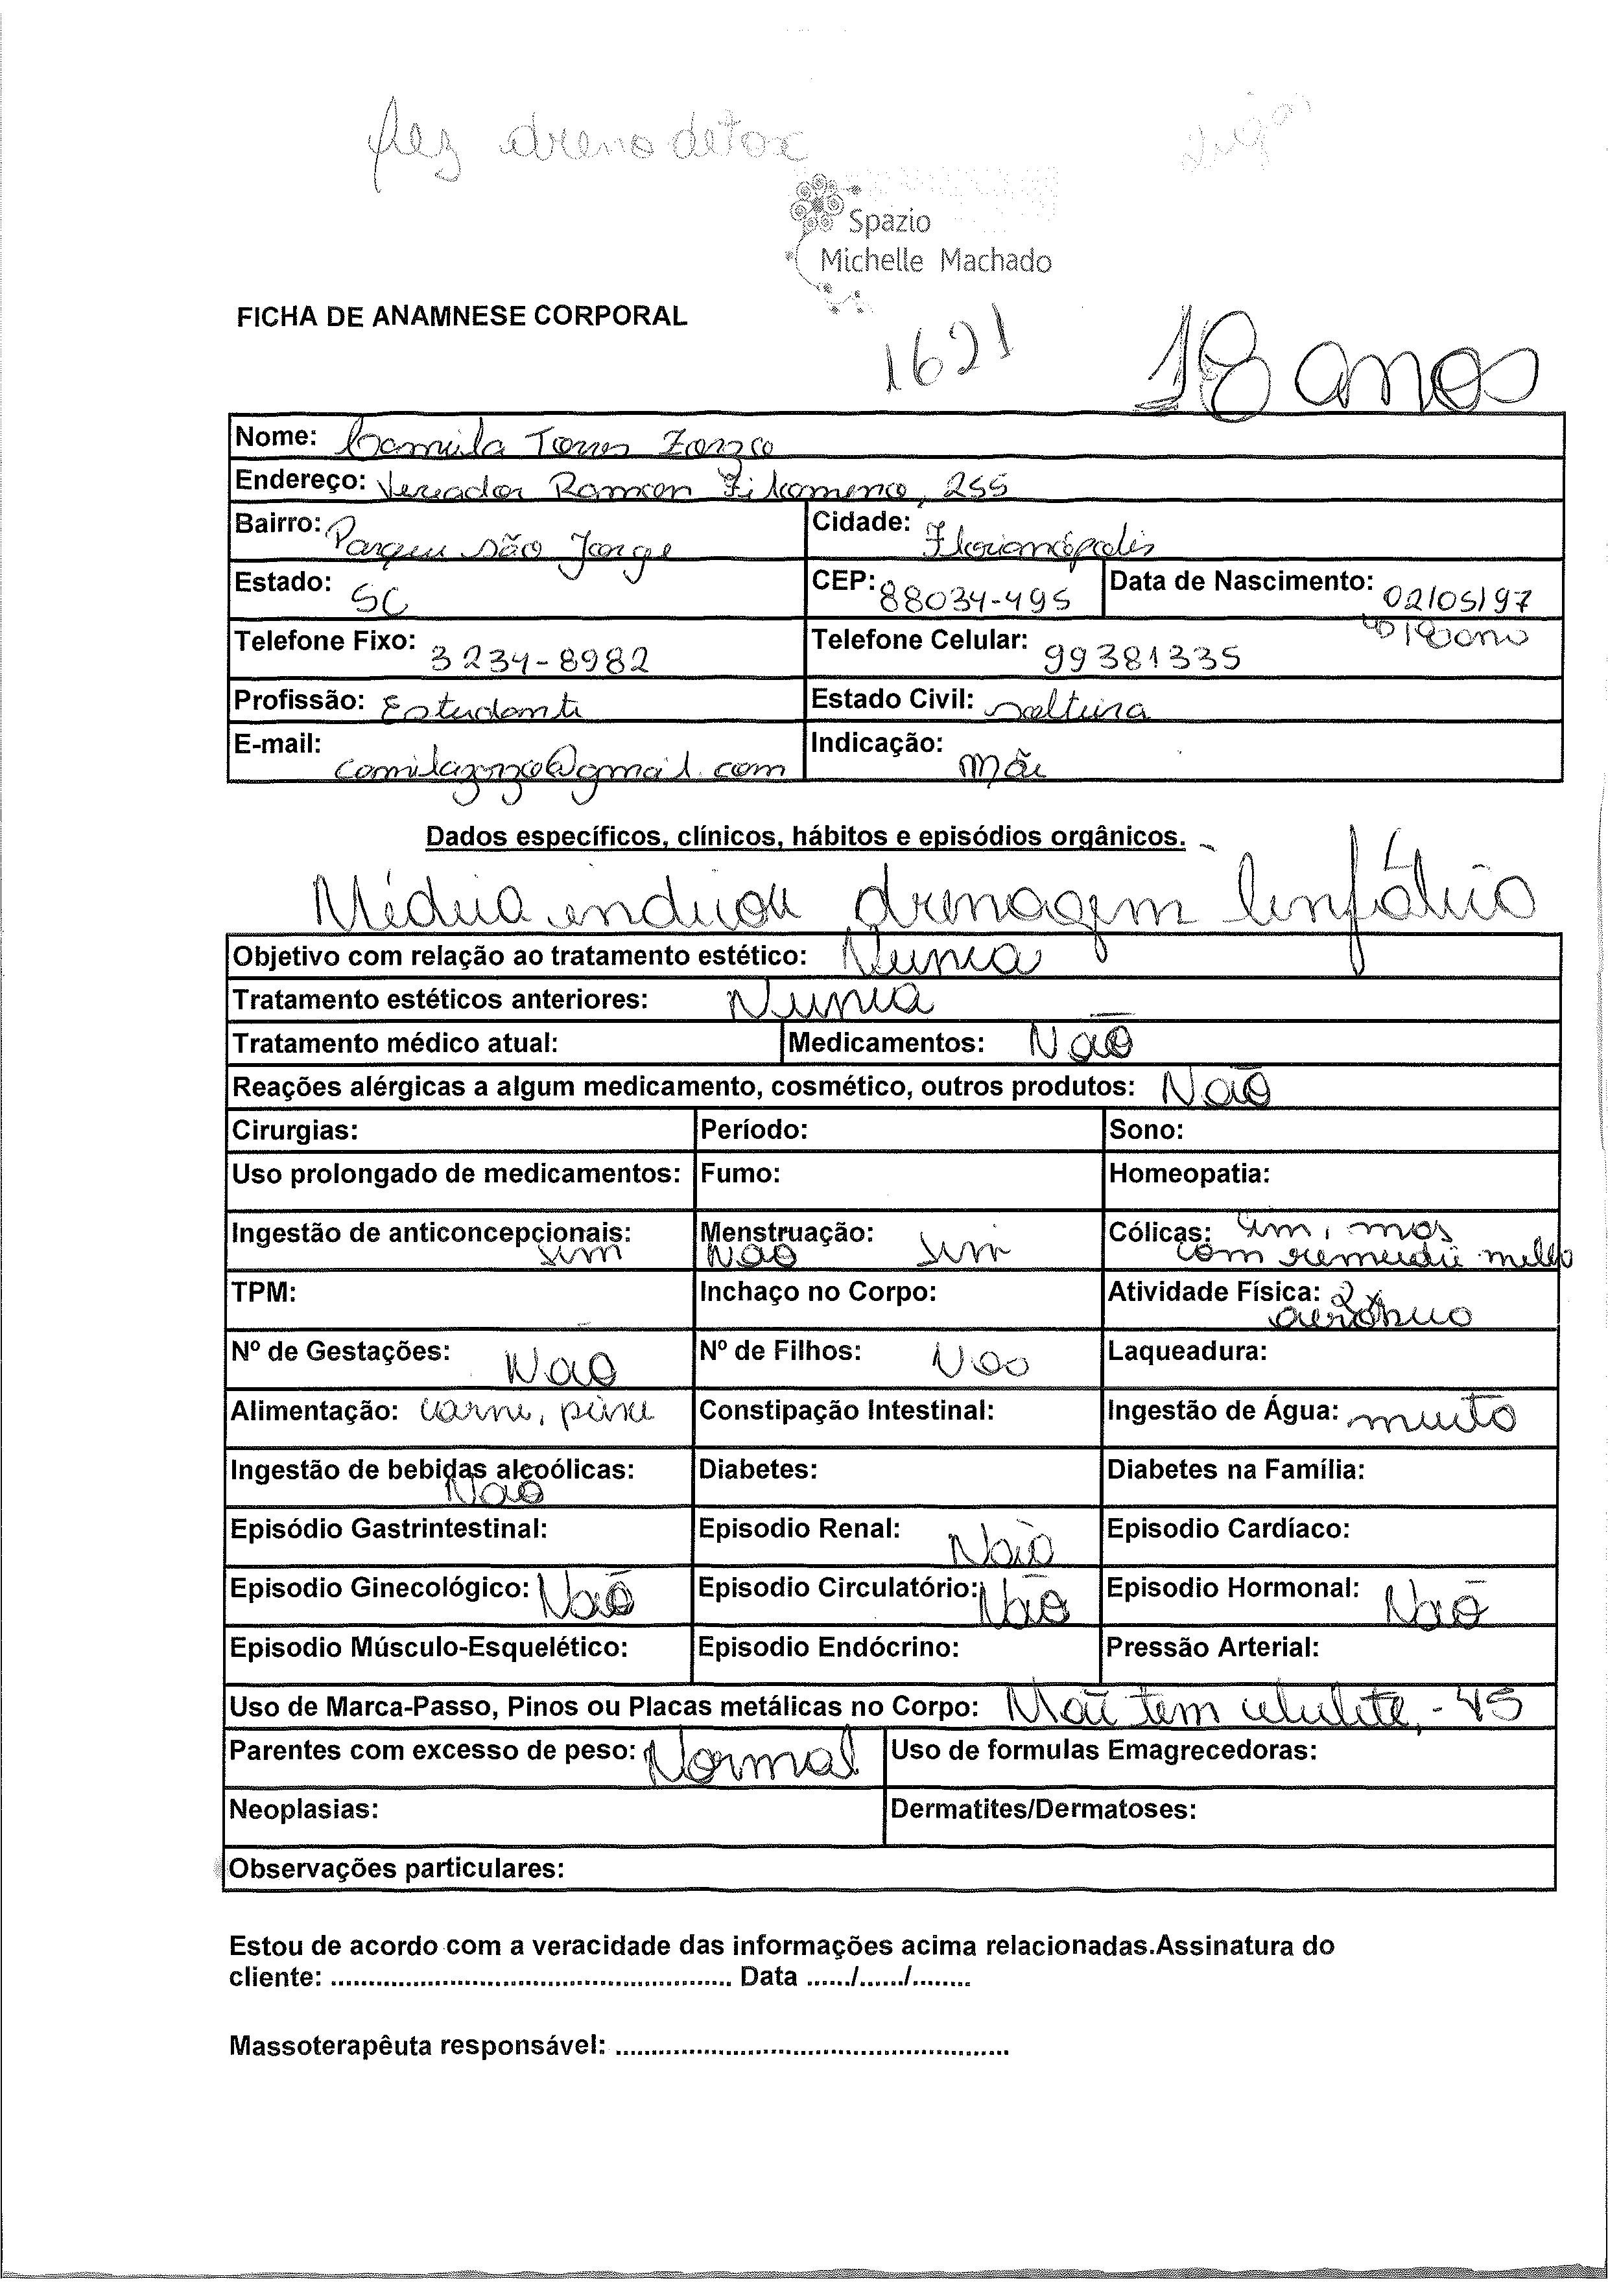 fez dreno detox
Spazio
Michelle Machado
FICHA DE ANAMNESE CORPORAL
1621
18 anos
Nome: Camila Torres Zanzo
Endereço: Vereador Ramon Filomeno, 255
Bairro: Parque são Jorge Cidade: Florianópolis
Estado: SC CEP: 88034-495 Data de Nascimento: 02/05/97
Telefone Fixo: 3234-8982 Telefone Celular: 99381335
Profissão: Estudante Estado Civil: solteira
E-mail: camilazanzo@gmail.com Indicação: Mãe
Dados específicos, clínicos, hábitos e episódios orgânicos.
Médica indicou drenagem linfática
Objetivo com relação ao tratamento estético: Nunca
Tratamento estéticos anteriores: Nunca
Tratamento médico atual: Medicamentos: Não
Reações alérgicas a algum medicamento, cosmético, outros produtos: Não
Cirurgias: Período: Sono:
Uso prolongado de medicamentos: Fumo: Homeopatia:
Ingestão de anticoncepcionais: sim Menstruação: Não sim Cólicas: sim, mas
com remedio melho
TPM: Inchaço no Corpo: Atividade Física: 2x
aeróbico
Nº de Gestações: Não Nº de Filhos: Não Laqueadura:
Alimentação: carne, peixe Constipação Intestinal: Ingestão de Água: muito
Ingestão de bebidas alcoólicas: Não Diabetes: Diabetes na Família:
Episódio Gastrintestinal: Episodio Renal: Não Episodio Cardíaco:
Episodio Ginecológico: Não Episodio Circulatório: Não Episodio Hormonal: Não
Episodio Músculo-Esquelético: Episodio Endócrino: Pressão Arterial:
Uso de Marca-Passo, Pinos ou Placas metálicas no Corpo: Mãe tem celulite, - 45
Parentes com excesso de peso: Normal Uso de formulas Emagrecedoras:
Neoplasias: Dermatites/Dermatoses:
Observações particulares:
Estou de acordo com a veracidade das informações acima relacionadas.Assinatura do
cliente: .................................................. Data ....../....../........
Massoterapêuta responsável: ..................................................